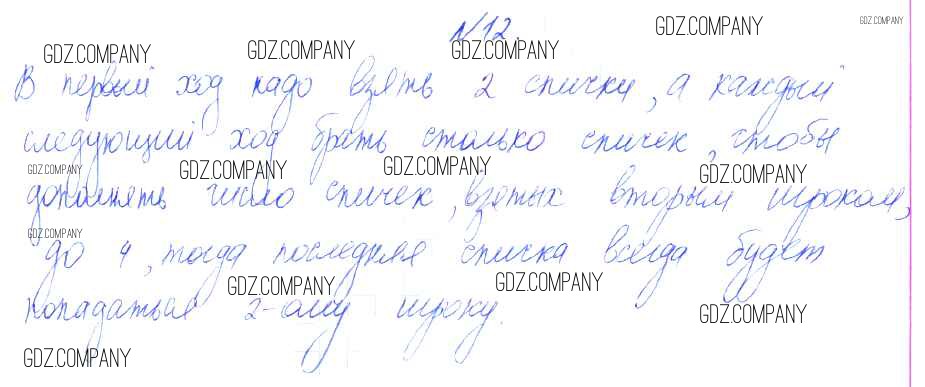 №12.
В первый ход надо взять 2 спички, а каждый
следующий ход брать столько спичек, чтобы
дополнять число спичек, взятых вторым игроком,
до 4, тогда последняя спичка всегда будет
попадаться 2-ому игроку.
GDZ.COMPANY GDZ.COMPANY GDZ.COMPANY GDZ.COMPANY GDZ.COMPANY
GDZ.COMPANY GDZ.COMPANY GDZ.COMPANY GDZ.COMPANY
GDZ.COMPANY
GDZ.COMPANY GDZ.COMPANY GDZ.COMPANY
GDZ.COMPANY